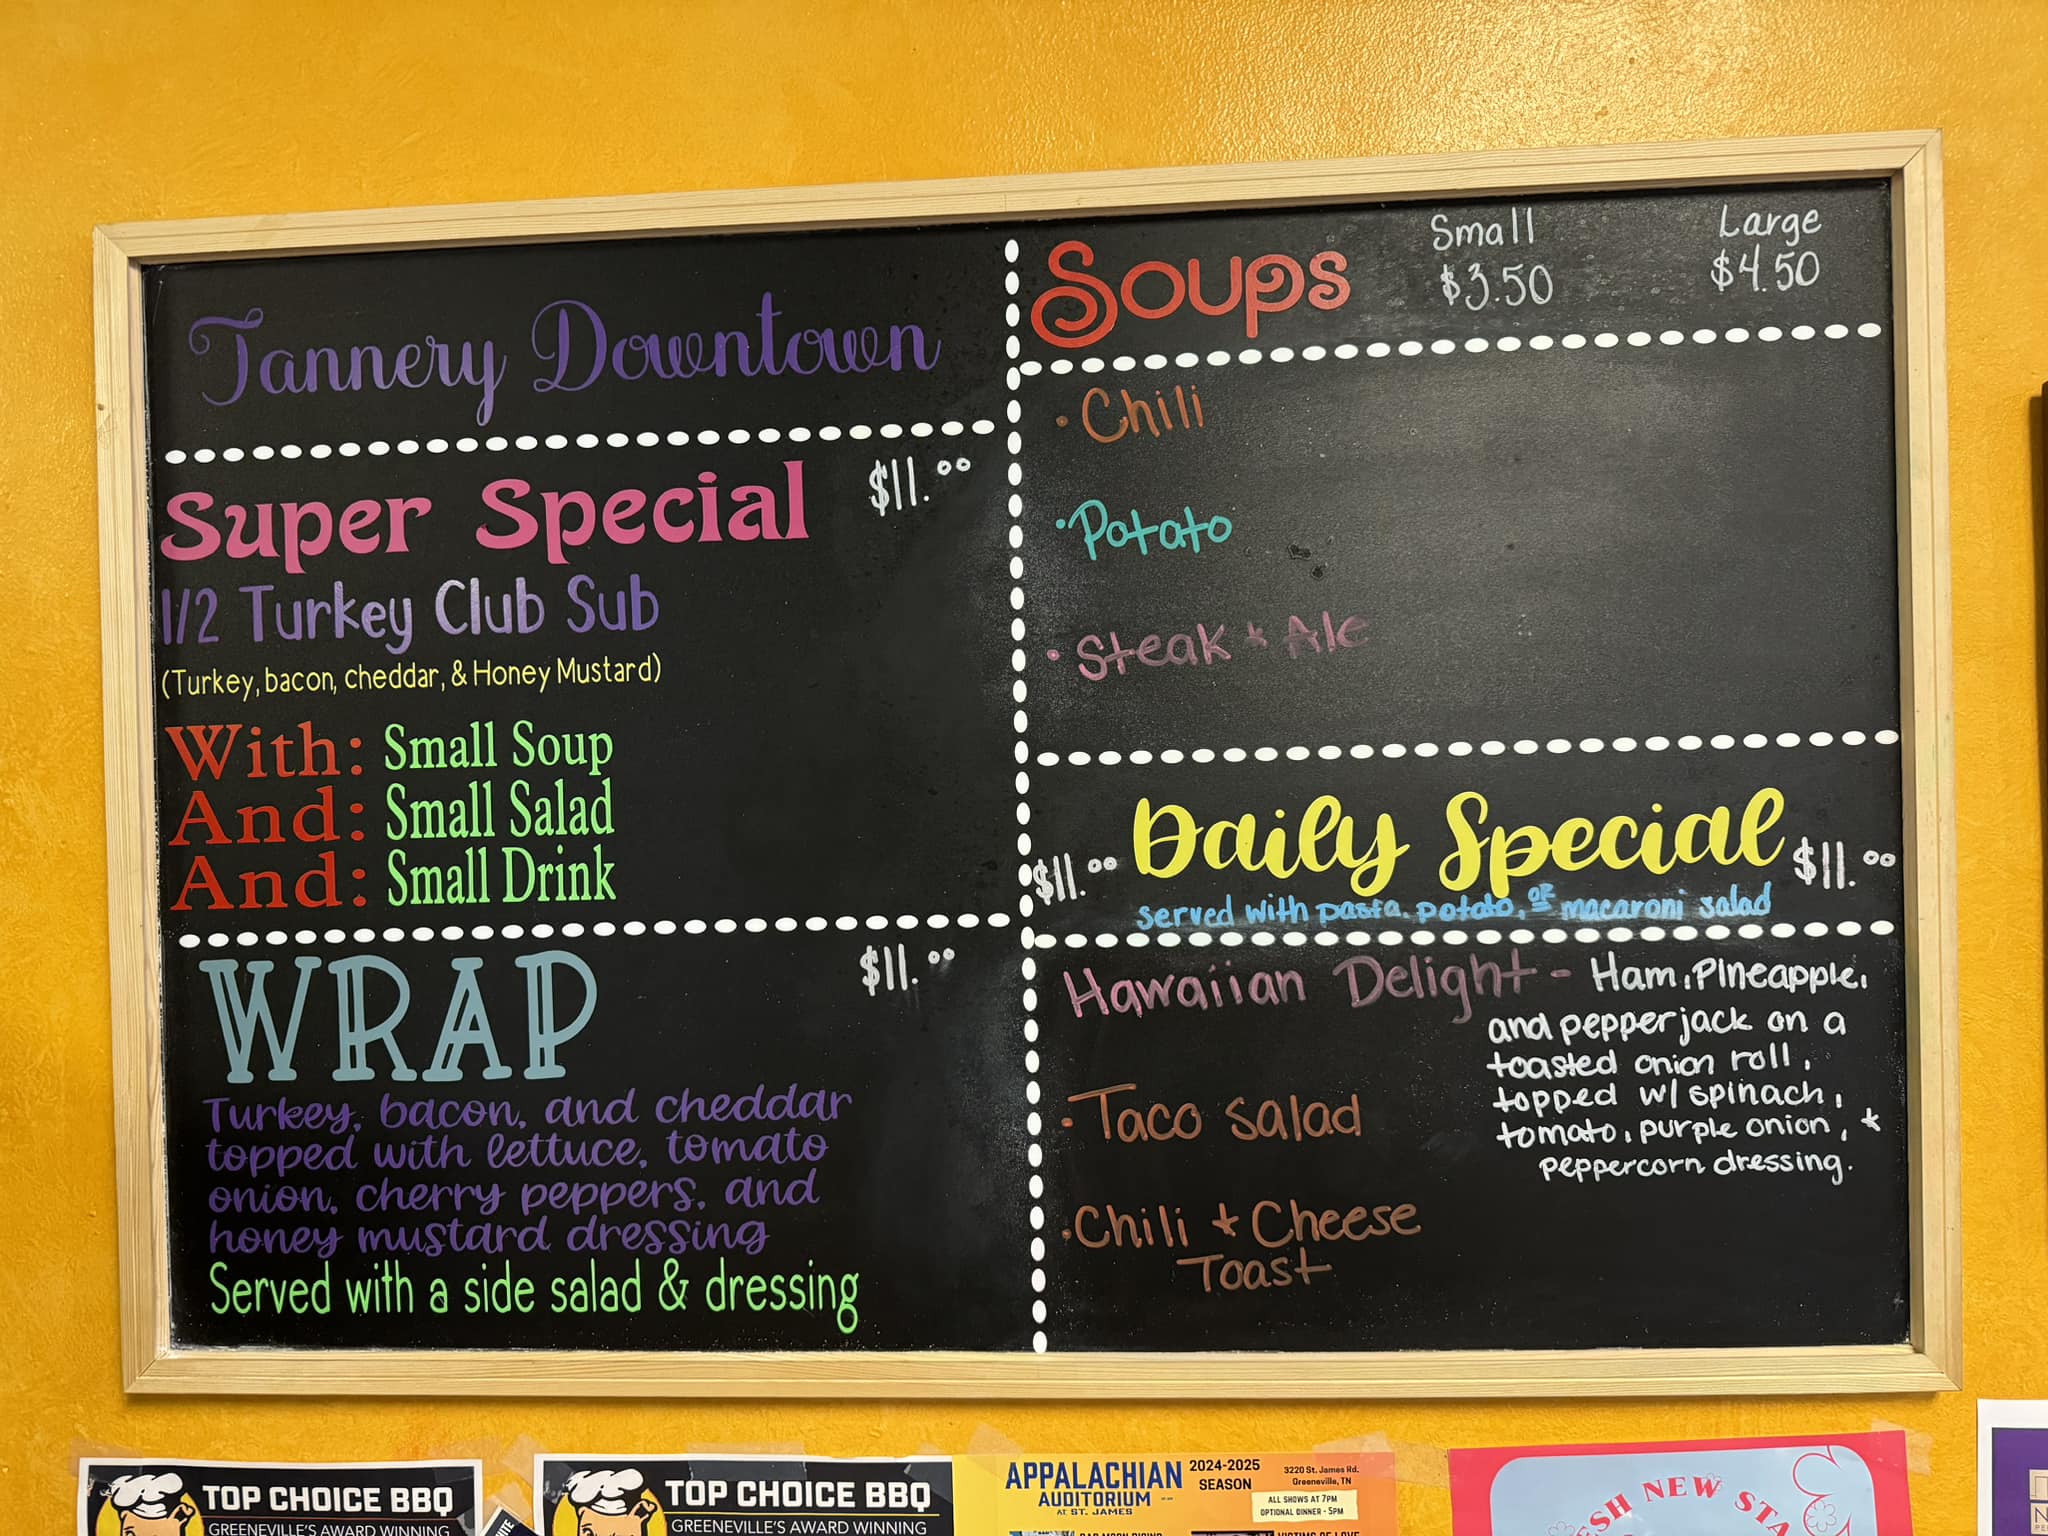 Tannery Downtown
Super Special $11.00
1/2 Turkey Club Sub
(Turkey, bacon, cheddar, & Honey Mustard)
With: Small Soup
And: Small Salad
And: Small Drink
WRAP $11.00
Turkey, bacon, and cheddar
topped with lettuce, tomato
onion, cherry peppers, and
honey mustard dressing
Served with a side salad & dressing
Soups
Small Large
$3.50 $4.50
• Chili
• Potato
• Steak & Ale
$11.00 Daily Special $11.00
served with pasta, potato, or macaroni salad
Hawaiian Delight - Ham, Pineapple,
and pepperjack on a
toasted onion roll,
topped w/ spinach,
tomato, purple onion, &
peppercorn dressing.
• Taco salad
• Chili & Cheese
Toast
TOP CHOICE BBQ
GREENEVILLE'S AWARD WINNING
TOP CHOICE BBQ
GREENEVILLE'S AWARD WINNING
APPALACHIAN
AUDITORIUM
AT ST. JAMES
2024-2025
SEASON
3220 St. James Rd.
Greeneville, TN
ALL SHOWS AT 7PM
OPTIONAL DINNER - 5PM
NEW